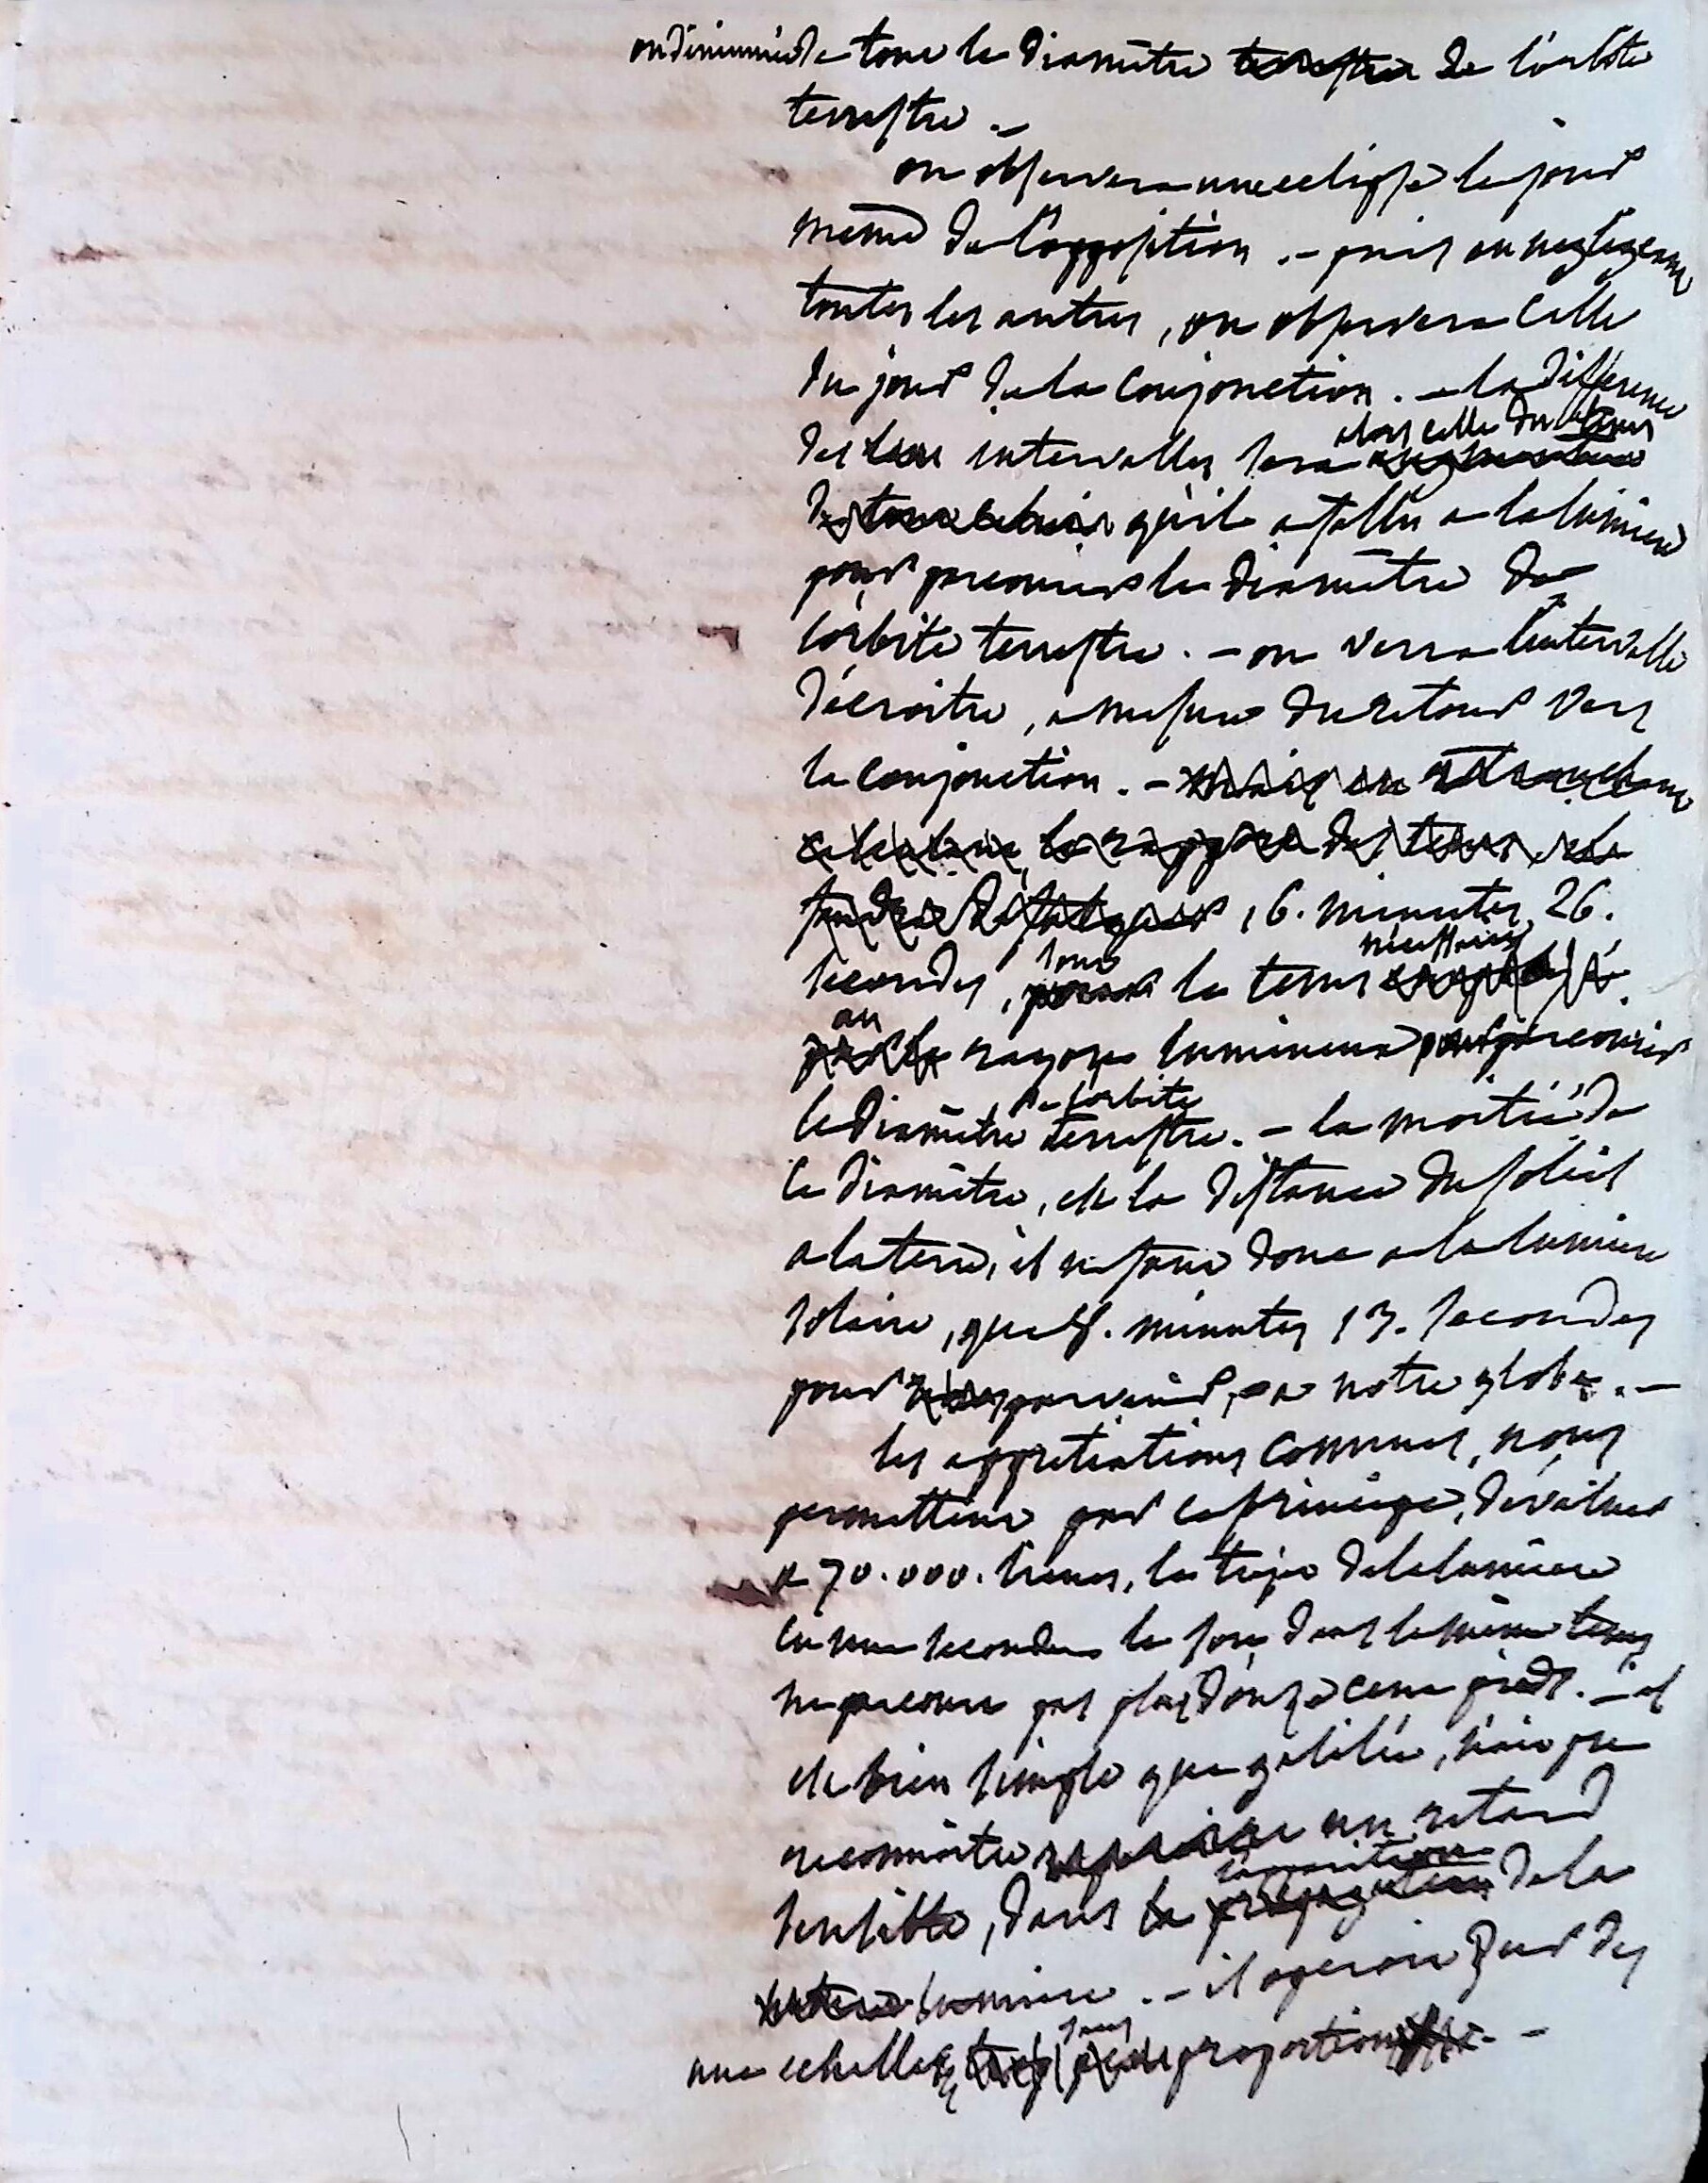 ou diminuée de tout le diamètre terrestre de l'orbite
terrestre. -
on observera une eclipse le jour
même de l'opposition. - puis en negligeant
toutes les autres, on observera celle
du jour de la conjonction. - la différence
des deux intervalles sera alors celle du tems
qu'il a fallu a la lumière
pour parcourir le diamètre de
l'orbite terrestre. - on verra l'intervalle
décroitre, a mesure du retour vers
la conjonction. - mais en retranchant
calculant le rapport des tems, et la
16. minutes, 26.
secondes, sont le tems nécessaire
au rayon lumineux pour parcourir
le diamètre de l'orbite terrestre. - la moitié de
ce diamètre, est la distance du soleil
a la terre, il ne faut donc a la lumière
solaire, que 8. minutes 13. secondes
pour parvenir, a notre globe. -
les appretiations connues, nous
permettent par ce principe, d'évaluer
a 70.000. lieues, le trajet de la lumière
en une seconde le son, dans le même tems
ne parcourt pas plus d'onze cent pieds. - il
est bien simple que galilée, n'ait pu
reconnoitre un retard
sensible, dans l'apparition de la
lumière. - il operait sur des
une echelle sans proportion. -